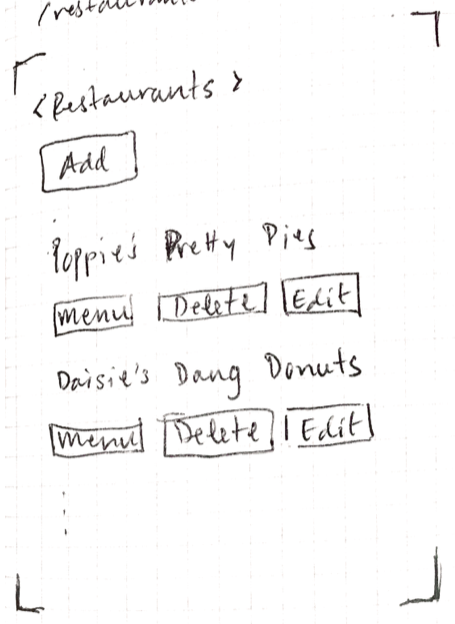 <Restaurants>
Add
Poppie's Pretty Pies
menu Delete Edit
Daisie's Dang Donuts
menu Delete Edit